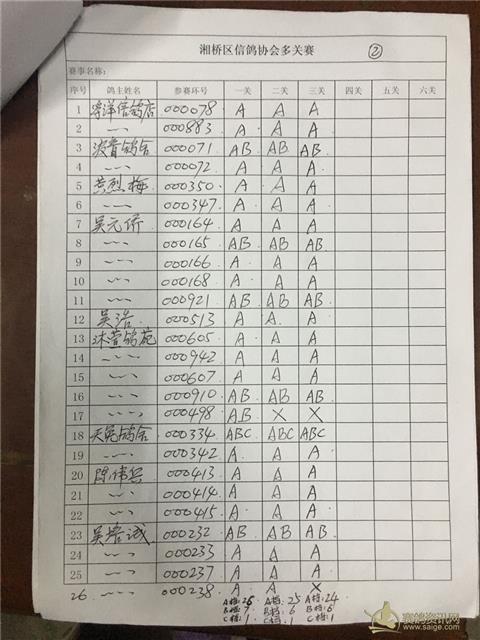 湘桥区信鸽协会多关赛 ②
赛事名称：
序号 鸽主姓名 参赛环号 一关 二关 三关 四关 五关 六关
1 海洋信鸽店 000078 A A A
2 ~~ 000883 A A A
3 波音鸽舍 000071 AB AB AB
4 ~~ 000072 A A A
5 黄烈梅 000350 A A A
6 ~~ 000347 A A A
7 吴元侨 000164 A A A
8 ~~ 000165 AB AB AB
9 ~~ 000166 A A A
10 ~~ 000168 A A A
11 ~~ 000921 AB AB AB
12 吴浩 000513 A A A
13 沐萱鸽苑 000605 A A A
14 ~~ 000942 A A A
15 ~~ 000607 A A A
16 ~~ 000910 AB AB AB
17 ~~ 000498 AB X X
18 天宪鸽舍 000334 ABC ABC ABC
19 ~~ 000342 A A A
20 陈伟兵 000413 A A A
21 ~~ 000414 A A A
22 ~~ 000415 A A A
23 吴培诚 000232 AB AB AB
24 ~~ 000233 A A A
25 ~~ 000237 A A A
26 ~~ 000238 A A X
A档:26 A档:25 A档:24
B档:7 B档:6 B档:6
C档:1 C档:1 C档:1
赛鸽资讯网
www.saige.com